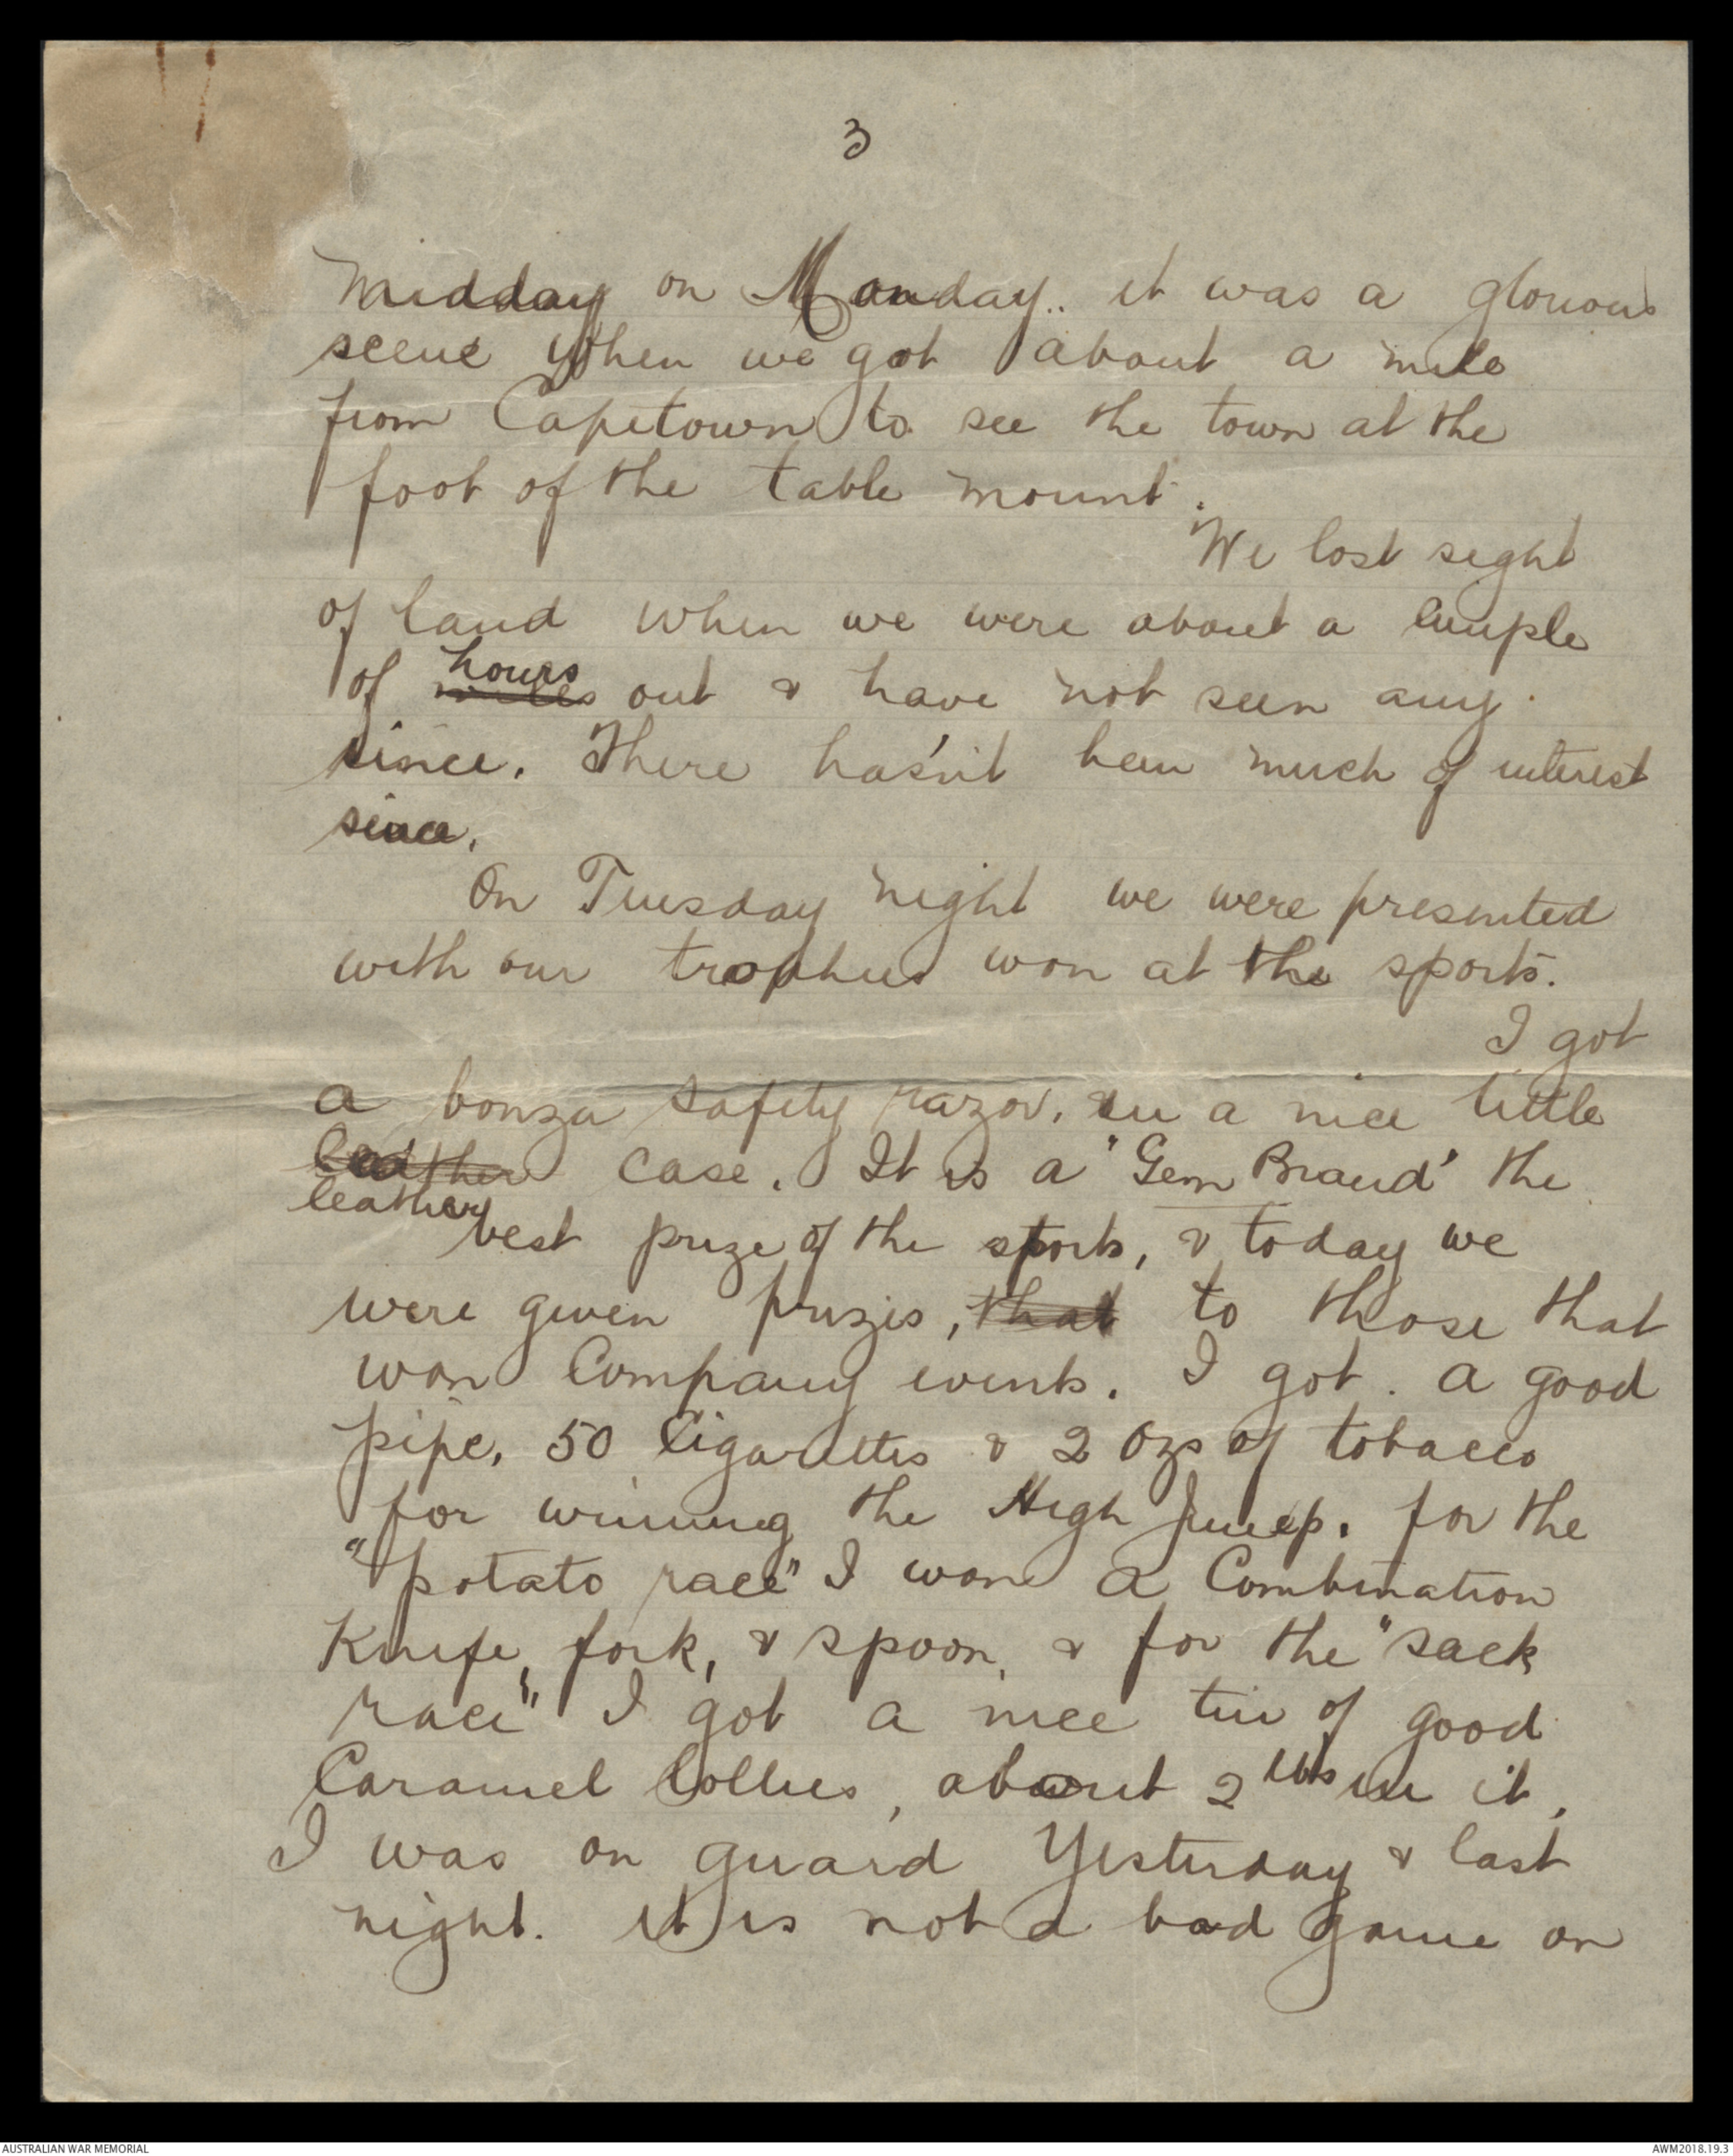 3
Midday on Monday.. it was a glorious
scene when we got about a mile
from Capetown to see the town at the
foot of the table mount.
We lost sight
of land when we were about a couple
of ~~miles~~ hours out & have not seen any
since. There has'nt been much of interest
since.
On Tuesday night we were presented
with our trophies won at the sports.
I got
a bonza safety razor, in a nice little
~~leather~~ case. It is a "Gem Brand" the
leather
best prize of the sports, & today we
were given prizes, ~~that~~ to those that
won Company events. I got. a good
pipe, 50 Cigarettes & 2 ozs of tobacco
for winning the High Jump. for the
"potato race" I won a Combination
Knife, fork, & spoon, & for the "sack
race" I got a nice tin of good
Caramel lollies, about 2 lbs in it.
I was on guard Yesterday & last
night. it is not a bad game on
AUSTRALIAN WAR MEMORIAL
AWM2018.19.3